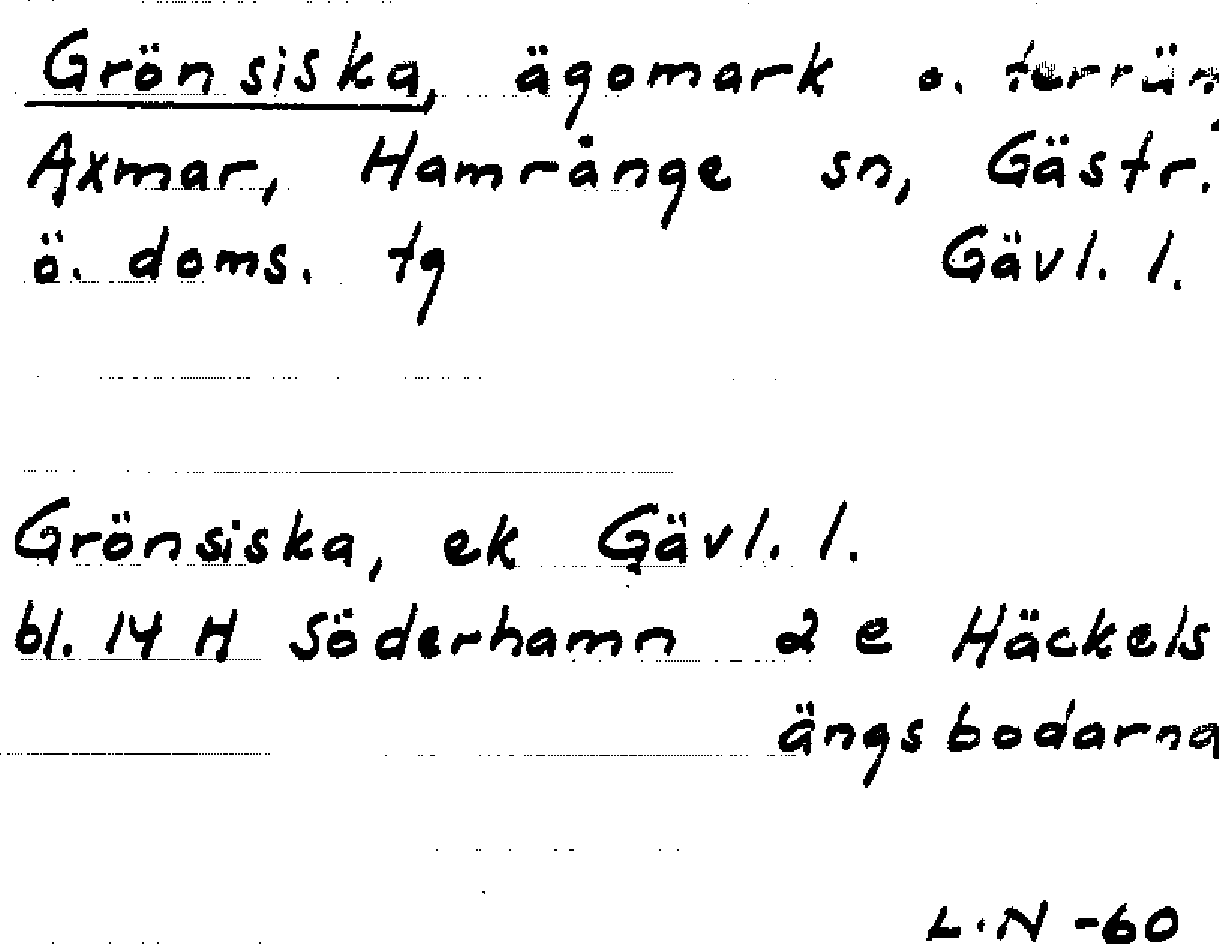 Grönsiska, ägomark o. terrän
Axmar, Hamrånge sn, Gästr.
ö. doms. tg Gävl. l.
Grönsiska, ek Gävl. l.
bl. 14 H Söderhamn 2 e Häckels
ängsbodarna
L.N -60